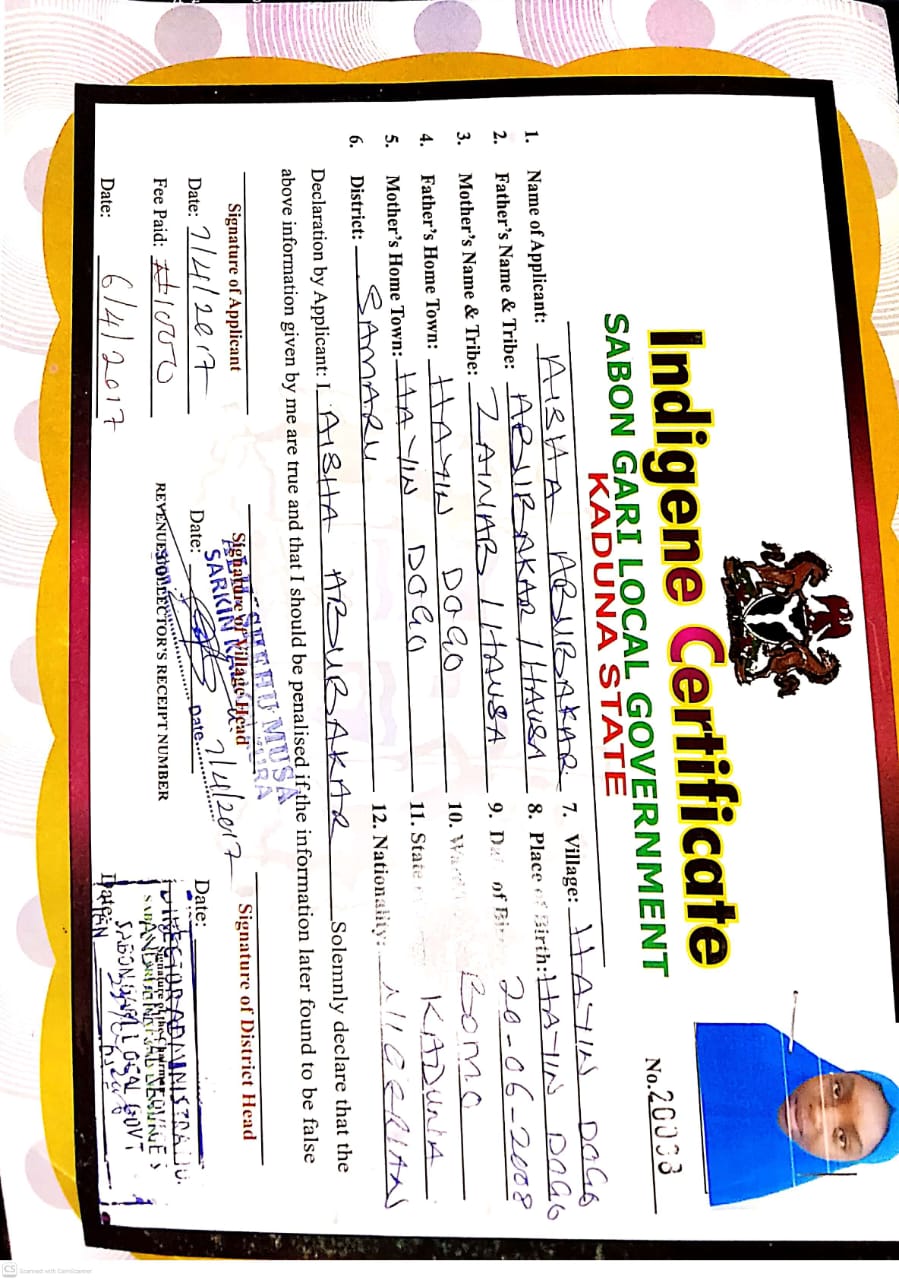 Indigene Certificate
SABON GARI LOCAL GOVERNMENT
KADUNA STATE
No. 20003
1. Name of Applicant: AISHA ABUBAKAR
2. Father's Name & Tribe: ABUBAKAR / HAUSA
3. Mother's Name & Tribe: ZAINAB / HAUSA
4. Father's Home Town: HAYIN DOGO
5. Mother's Home Town: HAYIN DOGO
6. District: SAMARU
7. Village: HAYIN DOGO
8. Place of Birth: HAYIN DOGO
9. Dat of Bir 20-06-2008
10. War BOMO
11. State KADUNA
12. Nationality: NIGERIAN
Declaration by Applicant: I AISHA ABUBAKAR Solemnly declare that the
above information given by me are true and that I should be penalised if the information later found to be false
Signature of Applicant
Date: 7/4/2017
Fee Paid: ₦1000
Date: 6/4/2017
SHEHU MUSA
Signature of Village Head
SARKIN
Date:
Date 7/4/2017
REVENUE COLLECTOR'S RECEIPT NUMBER
Signature of District Head
Date:
DIRECTOR ADMINISTRATIO
SABON GARI LOCAL GOVT
Date:
CS Scanned with CamScanner